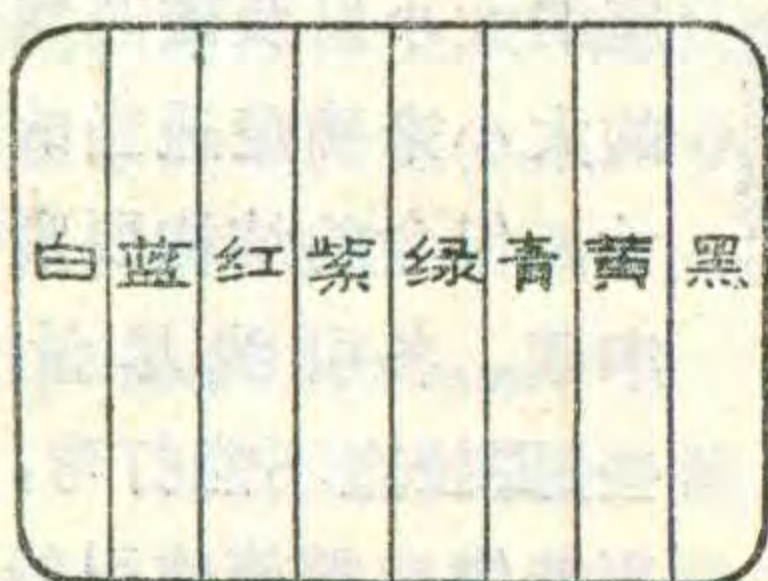 白 蓝 红 紫 绿 青 黄 黑